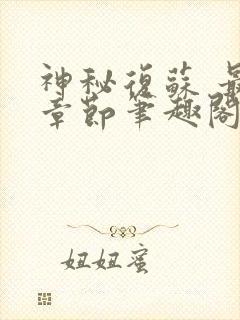 神秘復蘇 最
章節筆趣閣
妞妞蜜